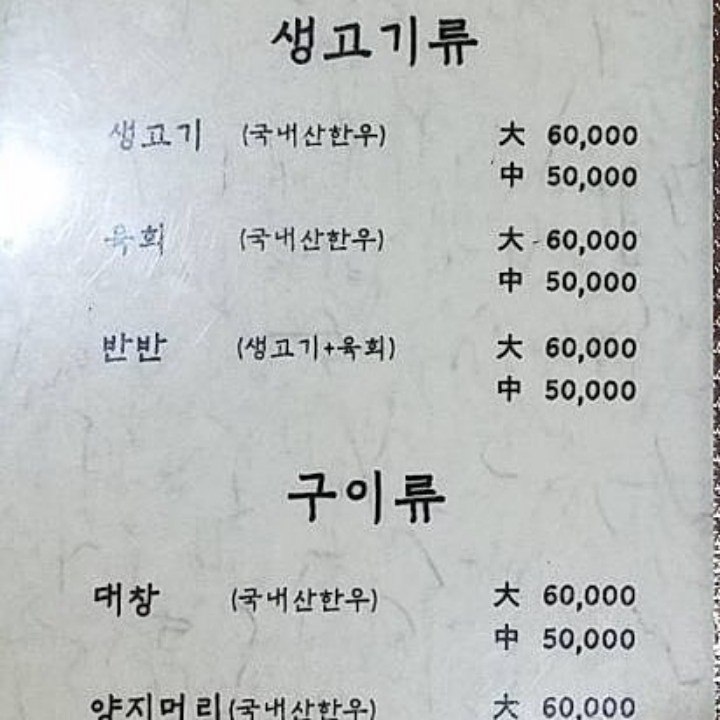 생고기류
생고기 (국내산한우) 大 60,000
中 50,000
육회 (국내산한우) 大 60,000
中 50,000
반반 (생고기+육회) 大 60,000
中 50,000
구이류
대창 (국내산한우) 大 60,000
中 50,000
양지머리 (국내산한우) 大 60,000